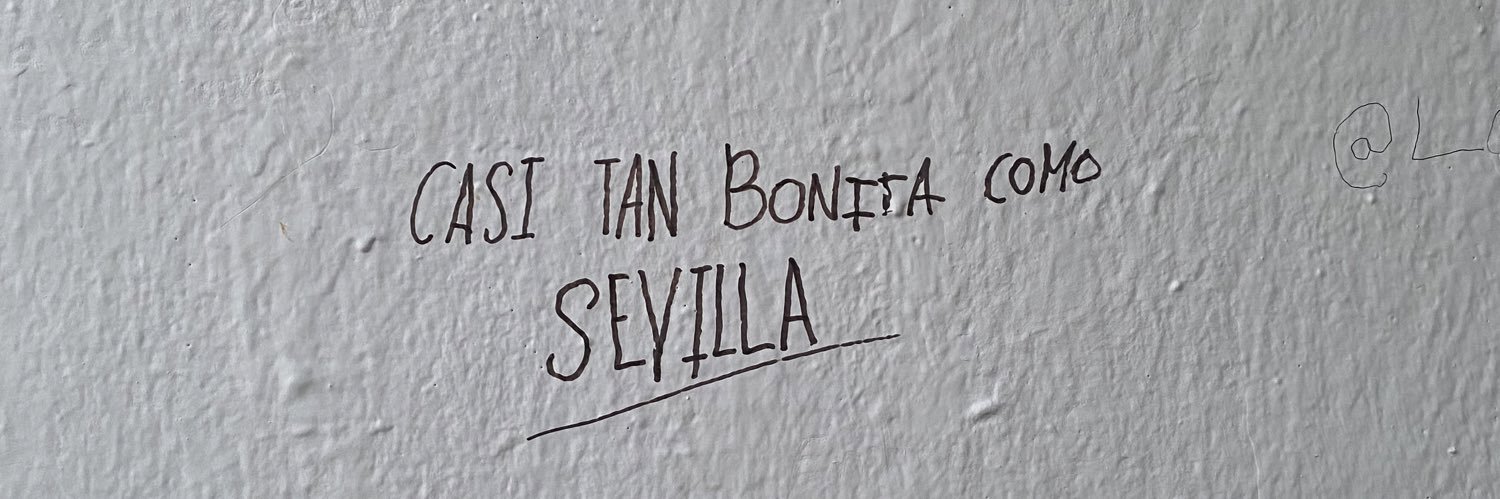 CASI TAN BONITA COMO
SEVILLA